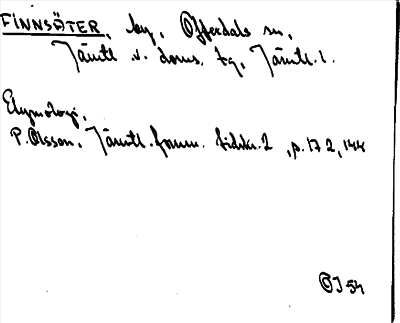 FINNSÄTER, by, Offerdals sn,
Jämtl. v. doms. tg, Jämtl. l.
Etymologi,
P. Olsson, Jämtl. fornm. tidskr. 2, p. 172, 144
OJ 54